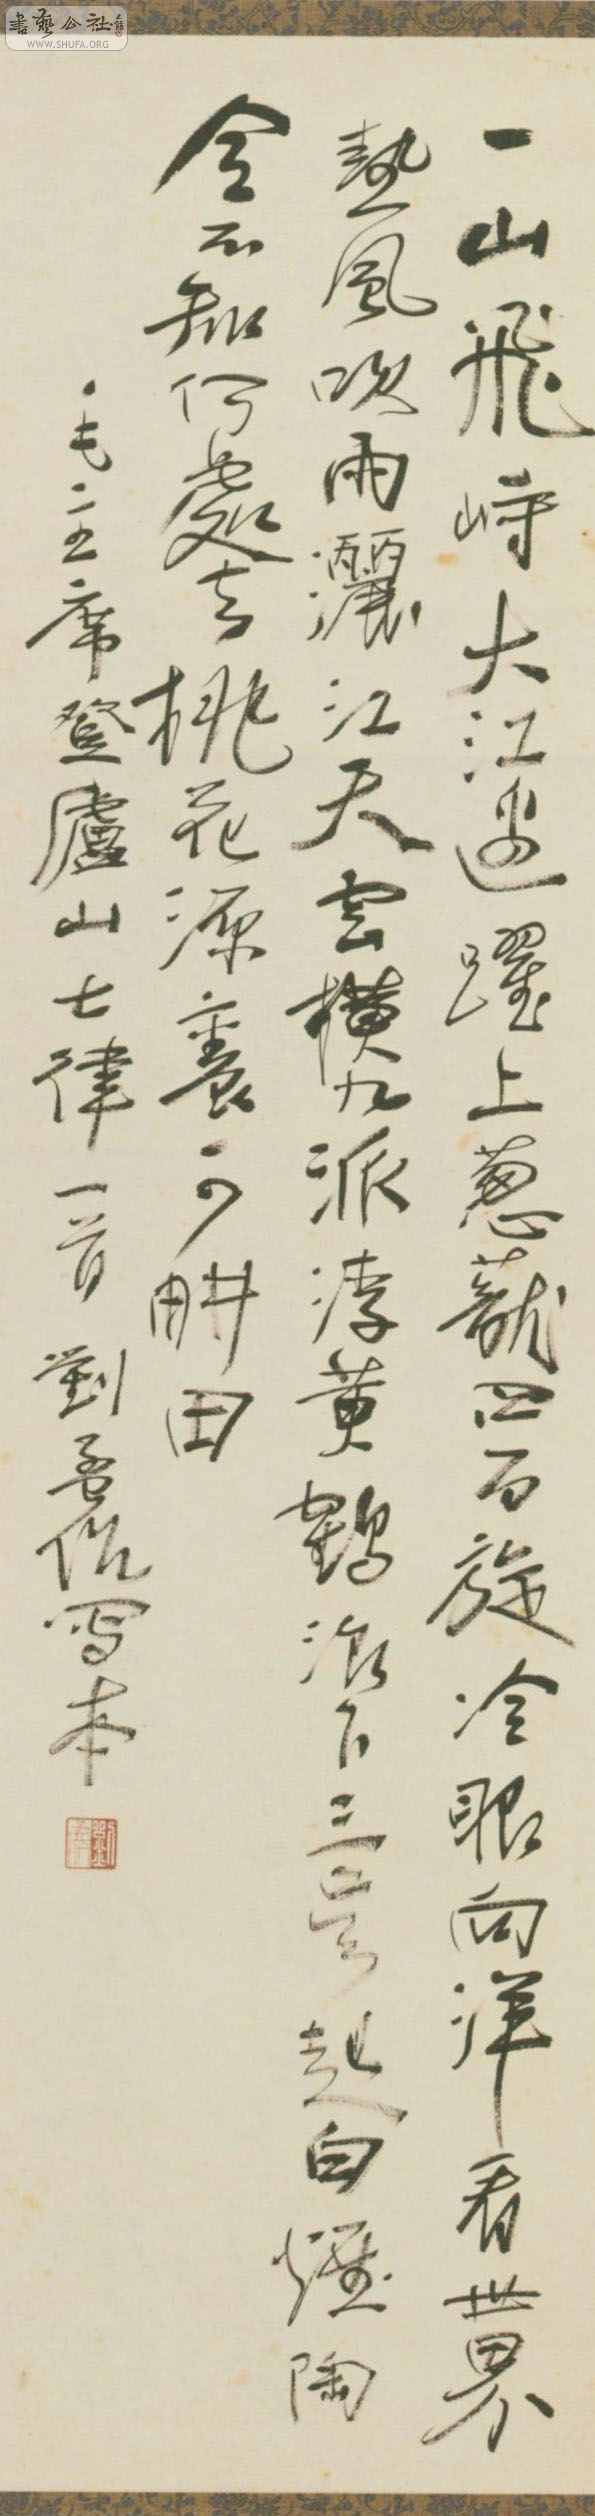 一山飛峙大江邊躍上蔥蘢四百旋冷眼向洋看世界
熱風吹雨灑江天雲橫九派浮黃鶴浪下三吳起白煙陶
令不知何處去桃花源裏可耕田
毛主席登廬山七律一首 劉孟伉寫本
書藝公社
WWW.SHUFA.ORG